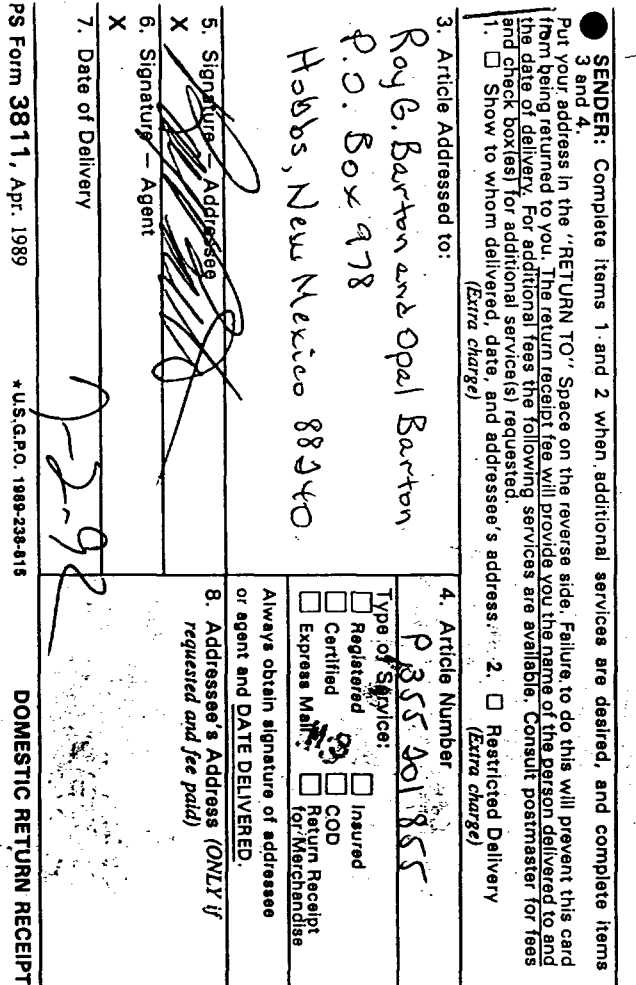 SENDER: Complete items 1 and 2 when additional services are desired, and complete items
3 and 4.
Put your address in the "RETURN TO" Space on the reverse side. Failure to do this will prevent this card
from being returned to you. The return receipt fee will provide you the name of the person delivered to and
the date of delivery. For additional fees the following services are available. Consult postmaster for fees
and check box(es) for additional service(s) requested.
1. ☐ Show to whom delivered, date, and addressee's address. 2. ☐ Restricted Delivery
(Extra charge) (Extra charge)
3. Article Addressed to:
Roy G. Barton and Opal Barton
P.O. Box 978
Hobbs, New Mexico 88240
4. Article Number
P 355 201 855
Type of Service:
☐ Registered ☐ Insured
☐ Certified ☐ COD
☐ Express Mail ☐ Return Receipt
for Merchandise
Always obtain signature of addressee
or agent and DATE DELIVERED.
5. Signature — Addressee
X
6. Signature — Agent
X
7. Date of Delivery
8. Addressee's Address (ONLY if
requested and fee paid)
PS Form 3811, Apr. 1989 * U.S.G.P.O. 1989-238-815 DOMESTIC RETURN RECEIPT